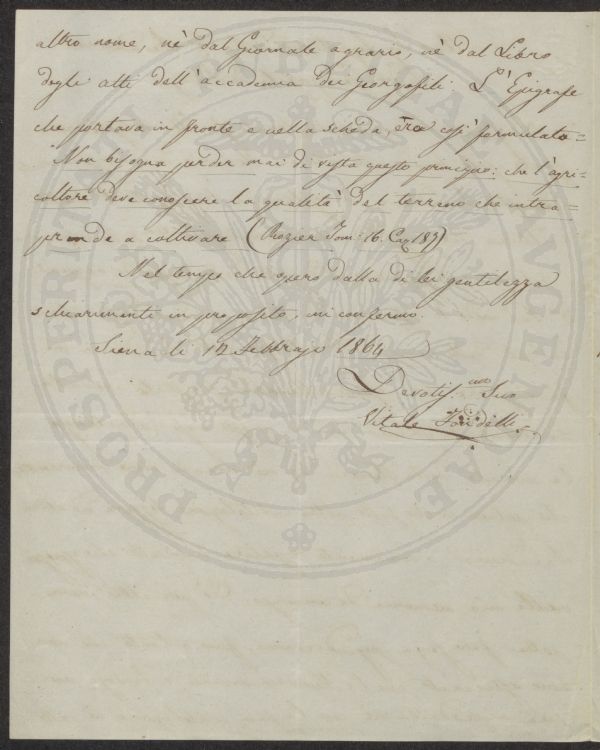 altro nome, nè dal Giornale agrario, nè dal Libro
degli atti dell'accademia dei Georgofili. L'Epigrafe
che portava in fronte e nella scheda, era così formulata=
Non bisogna perder mai di vista questo principio: che l'agri=
coltore deve conoscere la qualità del terreno che intra=
prende a coltivare (Rozier Tom: 16. Cap 183)
Nel tempo che spero dalla di lei gentilezza
schiarimenti in proposito, mi confermo.
Siena li 12 Febbrajo 1864
Devotiss. mo Suo
Vitale
PROSPERITATI PUBLICAE AUGENDAE